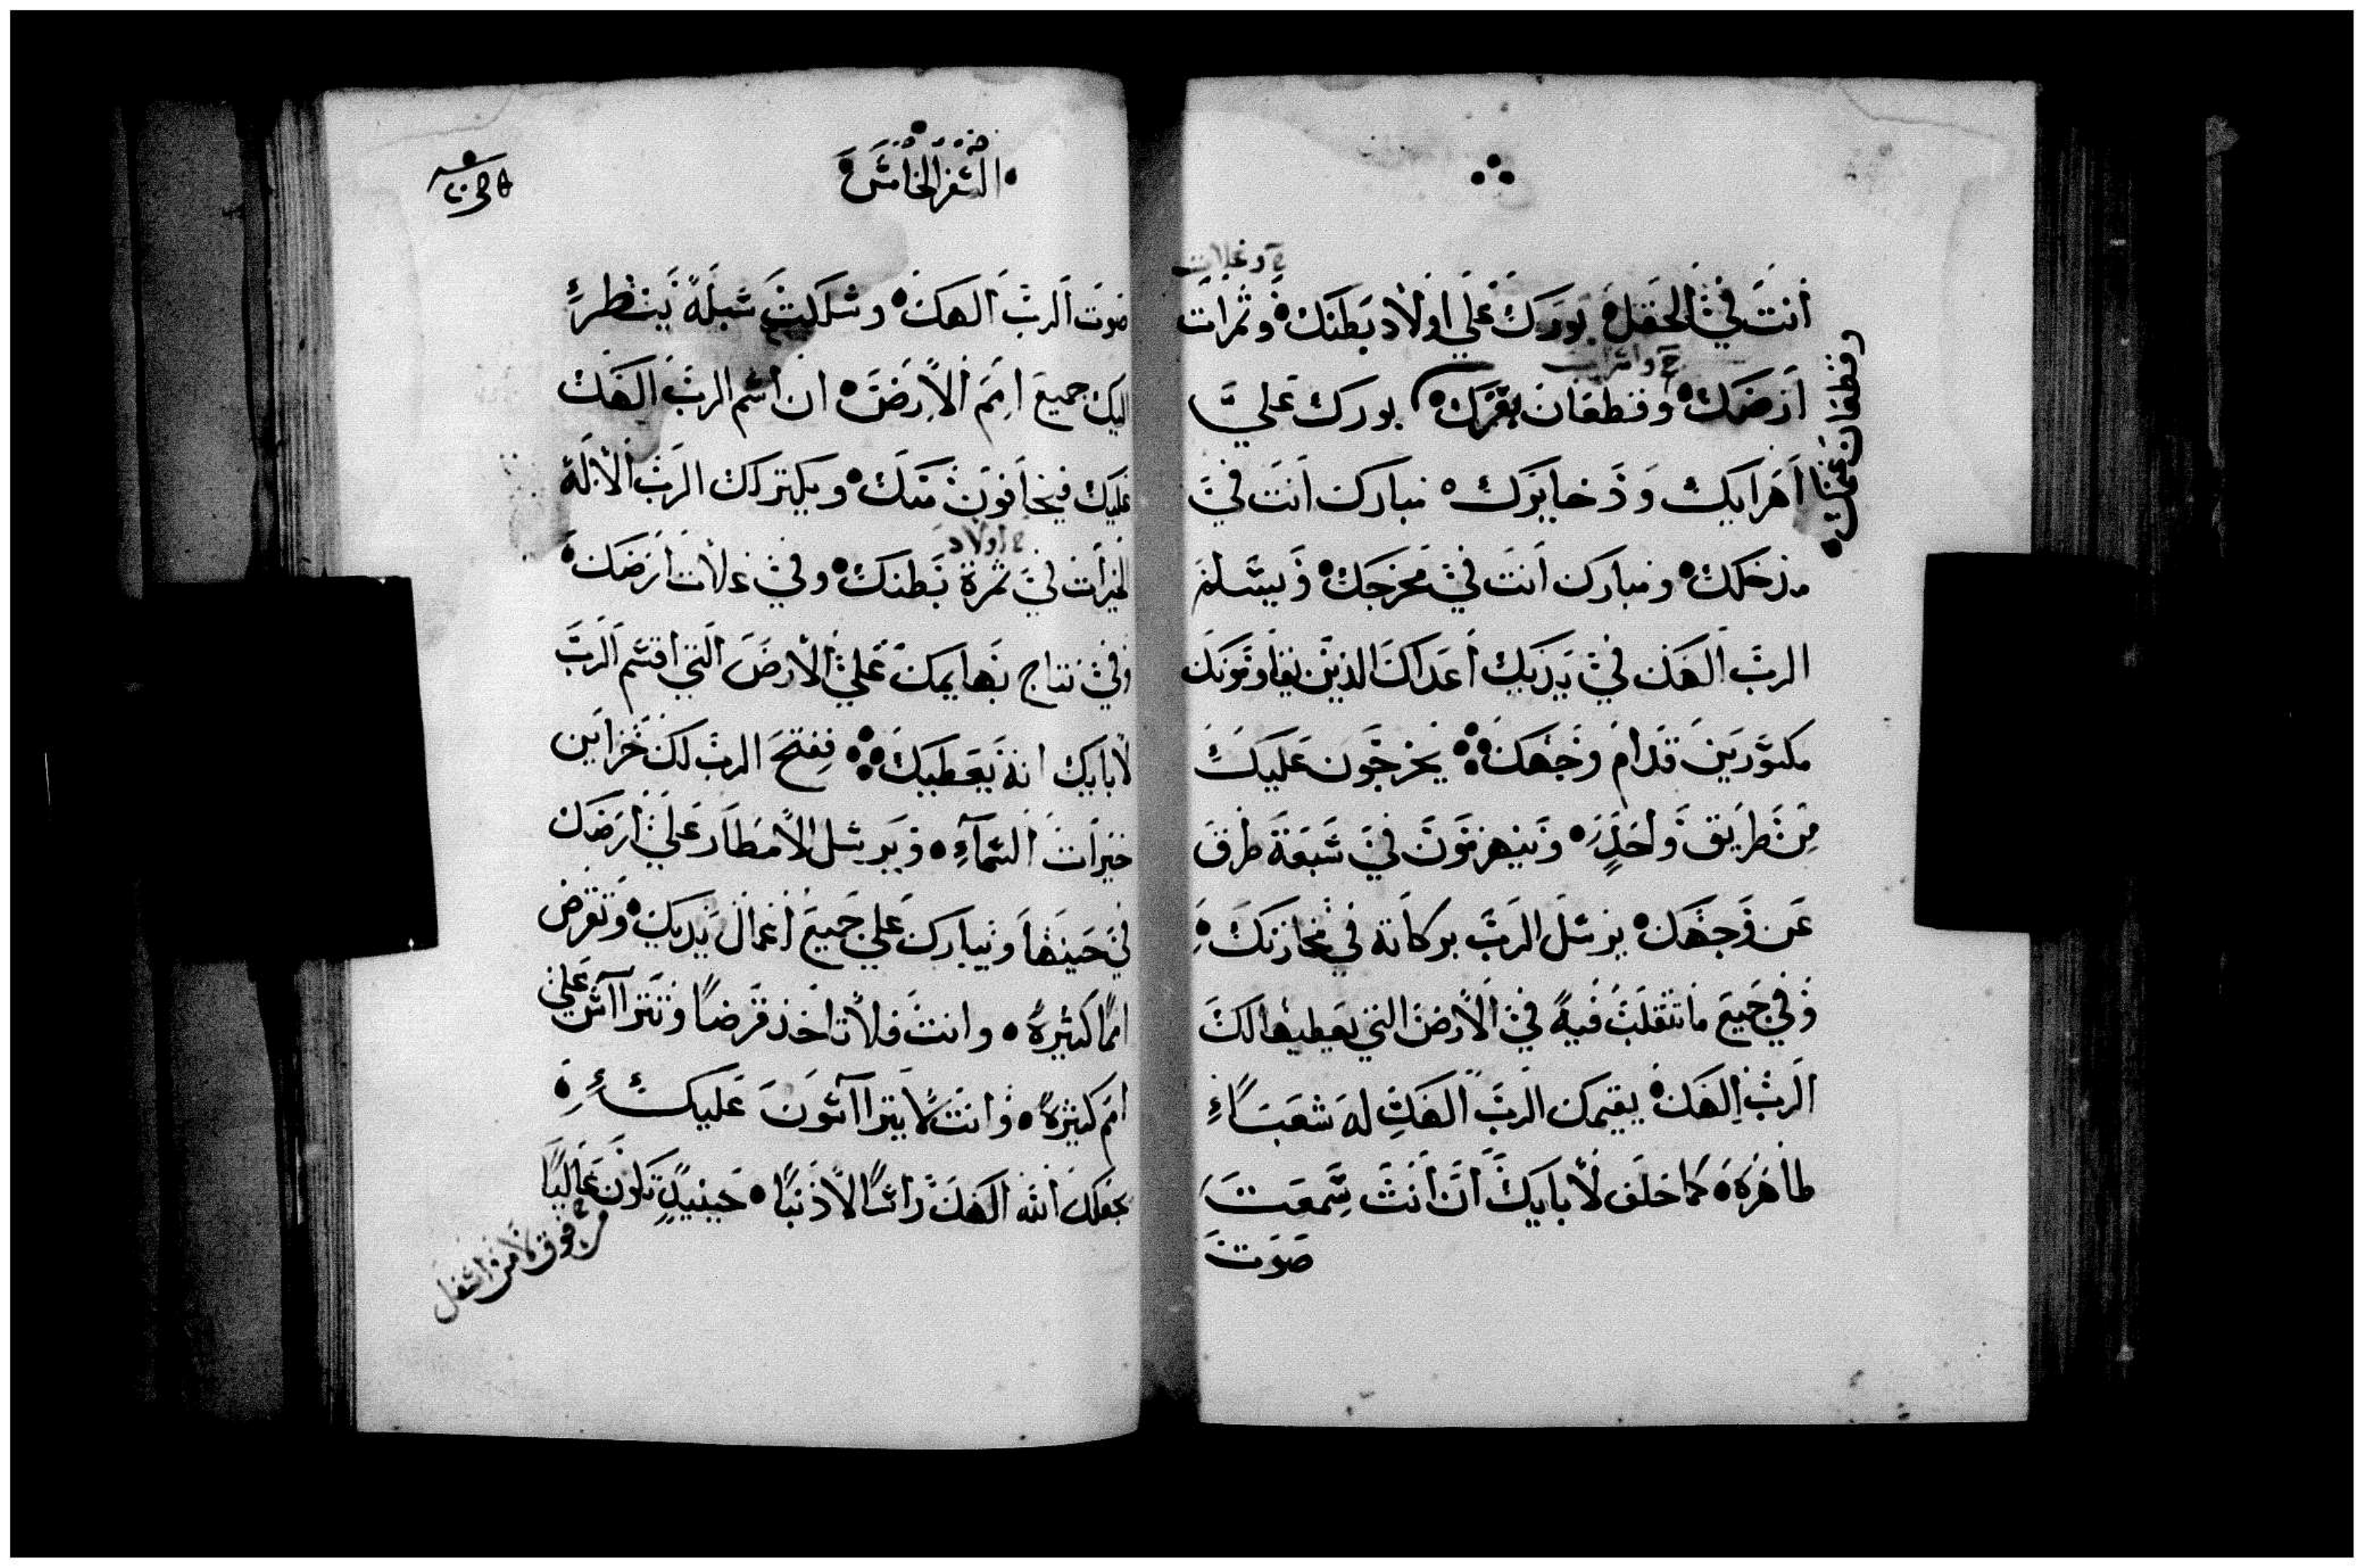 انت في الحقل بورك علي اولاد بطنك وثمرات
ح وغلات
ارضك وقطعان بقرك بورك علي
ح وامرايت
وقطعان غنمك
اهرايك وذخايرك مبارك انت في
مدخلك ومبارك انت في مخرجك ويسلم
الرب الهك في يديك اعداك الذين يقاومونك
مكسورين قدام وجهك يخرجون عليك
من طريق واحد وينهزمون في سبعة طرق
عن وجهك يرسل الرب بركاته في مخازنك
وفي جميع ما تتقلب فيه في الارض التي يعطيها لك
الرب الهك يقيمك الرب الهك له شعباً
طاهره كما حلف لابايك ان انت سمعت
صوت
السفر الخامس
صوت الرب الهك وسلكت سبله ينظر
اليك جميع امم الارض ان اسم الرب الهك
عليك فيخافون منك ويكترك الرب الاله
الخيرات في ثمرة بطنك وفي غلات ارضك
ح اولاد
وفي نتاج بهايمك علي الارض التي اقسم الرب
لابايك انه يعطيك يفتح الرب لك خزاين
خيرات السماء ويرسل الامطار علي ارضك
في حينها ويبارك علي جميع اعمال يديك وتقرض
امماً كثيرة وانت فلا تاخذ قرضاً وتتراآس علي
امم كثيرة وانت لا يتراآسون عليك
يجعلك الله الهك راساً لا ذنباً حينيذٍ تكون عالياً
من فوق لا من اسفل